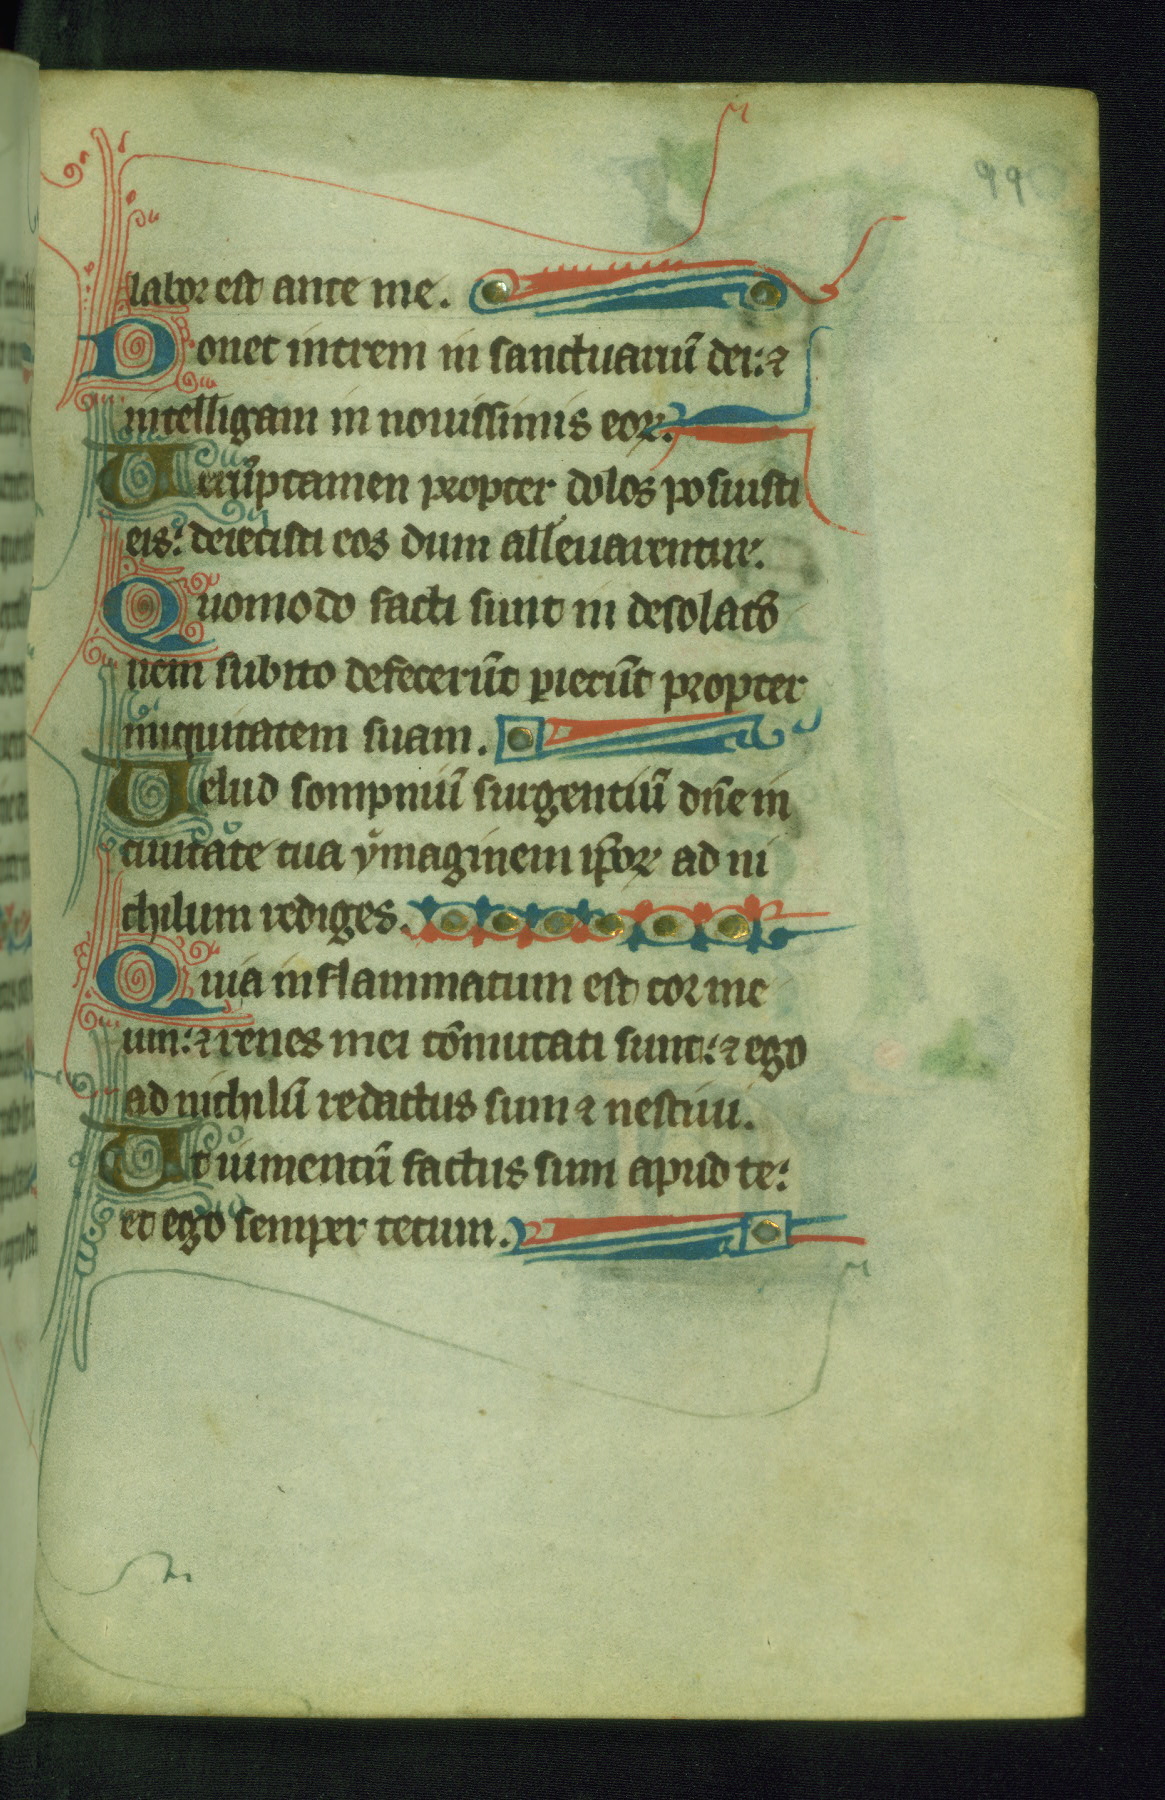 99
labor est ante me.
Donec intrem in sanctuariũ dei: ⁊
intelligam in nouissimis eoꝝ.
Uerũptamen propter dolos posuisti
eis: deiecisti eos dum alleuarentur.
Quomodo facti sunt in desolatõ
nem subito defecerũt ꝑierũt propter
iniquitatem suam.
Uelud sompniũ surgentiũ dñe in
ciuitate tua ymaginem ip̃oꝝ ad ni
chilum rediges.
Quia inflammatum est cor me
um: ⁊ renes mei cõmutati sunt: ⁊ ego
ad nichilũ redactus sum ⁊ nesciui.
Ut iumentũ factus sum apud te:
et ego semper tecum.